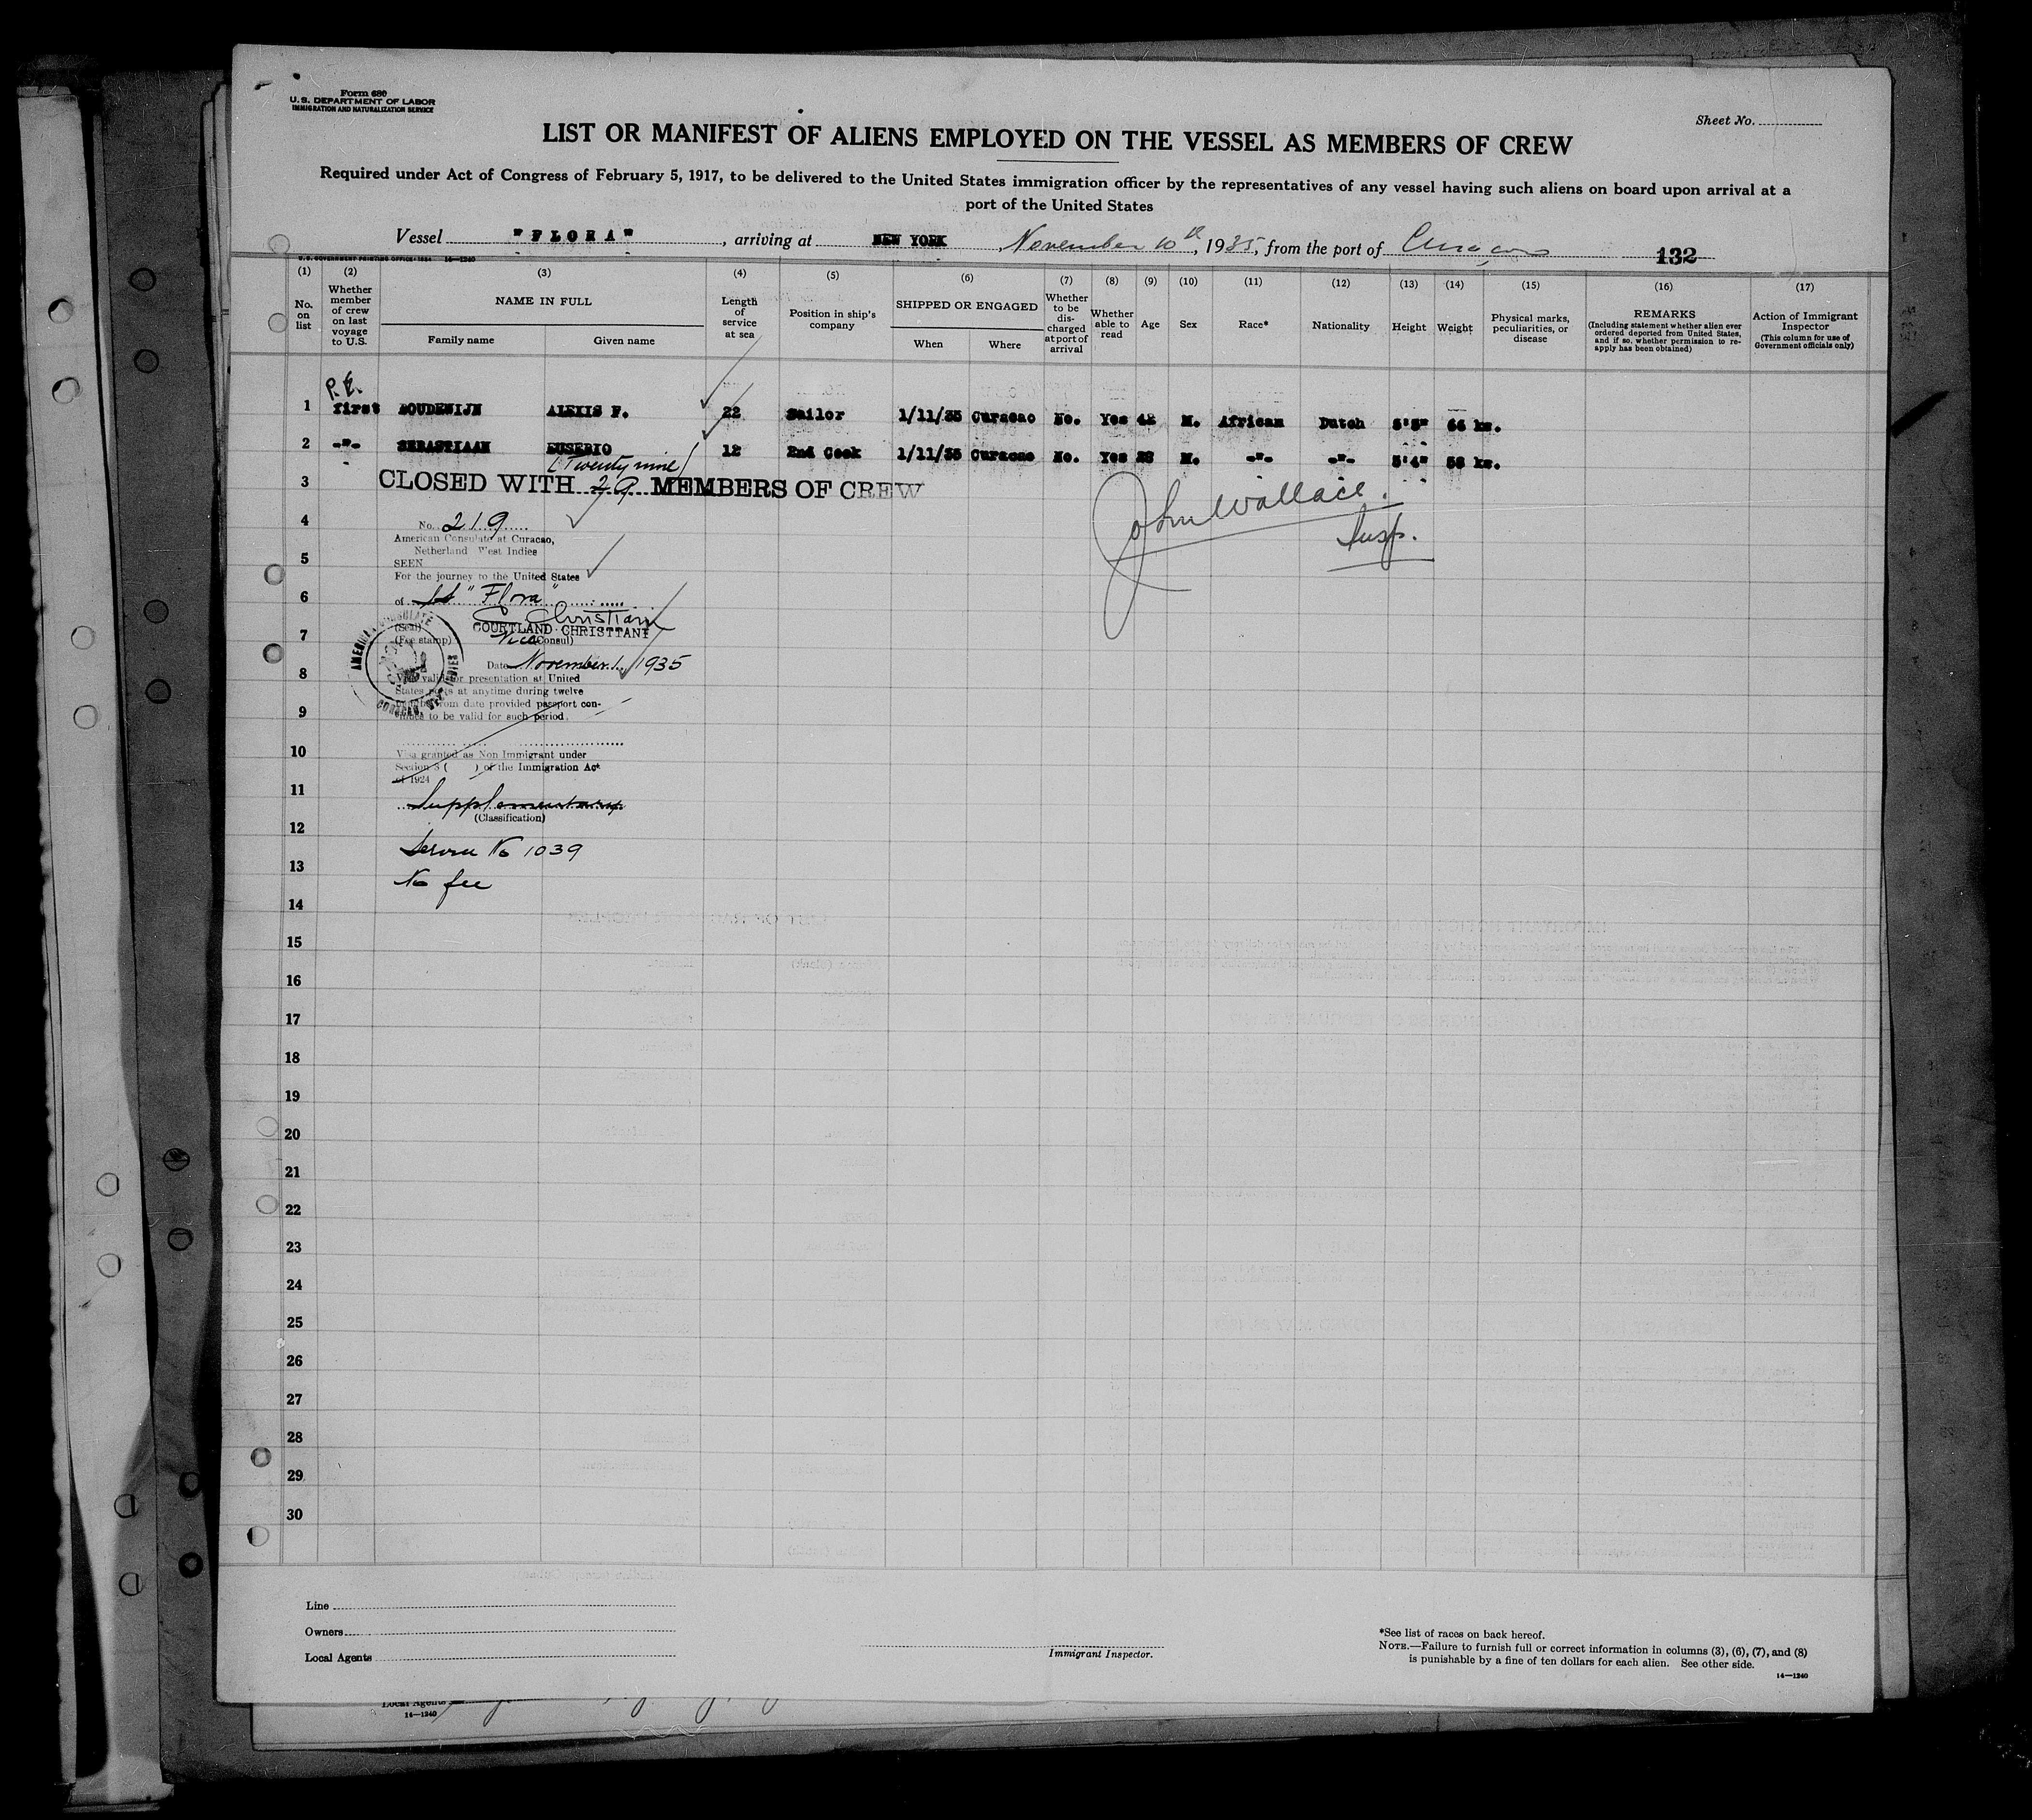 Form 680
U. S. DEPARTMENT OF LABOR
IMMIGRATION AND NATURALIZATION SERVICE
Sheet No.
LIST OR MANIFEST OF ALIENS EMPLOYED ON THE VESSEL AS MEMBERS OF CREW
Required under Act of Congress of February 5, 1917, to be delivered to the United States immigration officer by the representatives of any vessel having such aliens on board upon arrival at a
port of the United States
Vessel "FLORA", arriving at NEW YORK, November 10th, 1935, from the port of Curaçao 132
U.S. GOVERNMENT PRINTING OFFICE: 1934 14—1240
(1) (2) (3) (4) (5) (6) (7) (8) (9) (10) (11) (12) (13) (14) (15) (16) (17)
No. on list
Whether member of crew on last voyage to U.S.
NAME IN FULL
Family name Given name
Length of service at sea
Position in ship's company
SHIPPED OR ENGAGED
When Where
Whether to be discharged at port of arrival
Whether able to read
Age
Sex
Race*
Nationality
Height
Weight
Physical marks, peculiarities, or disease
REMARKS
(Including statement whether alien ever ordered deported from United States, and if so, whether permission to re-apply has been obtained)
Action of Immigrant Inspector
(This column for use of Government officials only)
1 first BOUDEWIJN ALEXIS F. 22 Sailor 1/11/35 Curacao No. Yes 42 M. African Dutch 5'5" 66 ks.
2 -"- SEBASTIAAN EUSEBIO 12 2nd Cook 1/11/35 Curacao No. Yes 28 M. -"- -"- 5'4" 58 ks.
(Twenty nine)
3 CLOSED WITH 29 MEMBERS OF CREW
John Wallace.
Insp.
4 No. 219
American Consulate at Curacao,
Netherland West Indies
5 SEEN
For the journey to the United States
6 of SS "Flora"
C Christiani
(Seal) COURTLAND CHRISTIANI
7 (Fee stamp) Vice (Consul)
AMERICAN CONSULATE
CURACAO, WEST INDIES
Date November 1, 1935
8 Visa valid for presentation at United
States ports at anytime during twelve
months from date provided passport con-
9 tinues to be valid for such period.
10 Visa granted as Non Immigrant under
Section 3 ( ) of the Immigration Act
of 1924
11 Supplementary
(Classification)
12
Service No 1039
13
No fee
14
15
16
17
18
19
20
21
22
23
24
25
26
27
28
29
30
Line
Owners
Local Agents
Immigrant Inspector.
*See list of races on back hereof.
NOTE.—Failure to furnish full or correct information in columns (3), (6), (7), and (8)
is punishable by a fine of ten dollars for each alien. See other side.
14—1240
Local Agents
14—1240